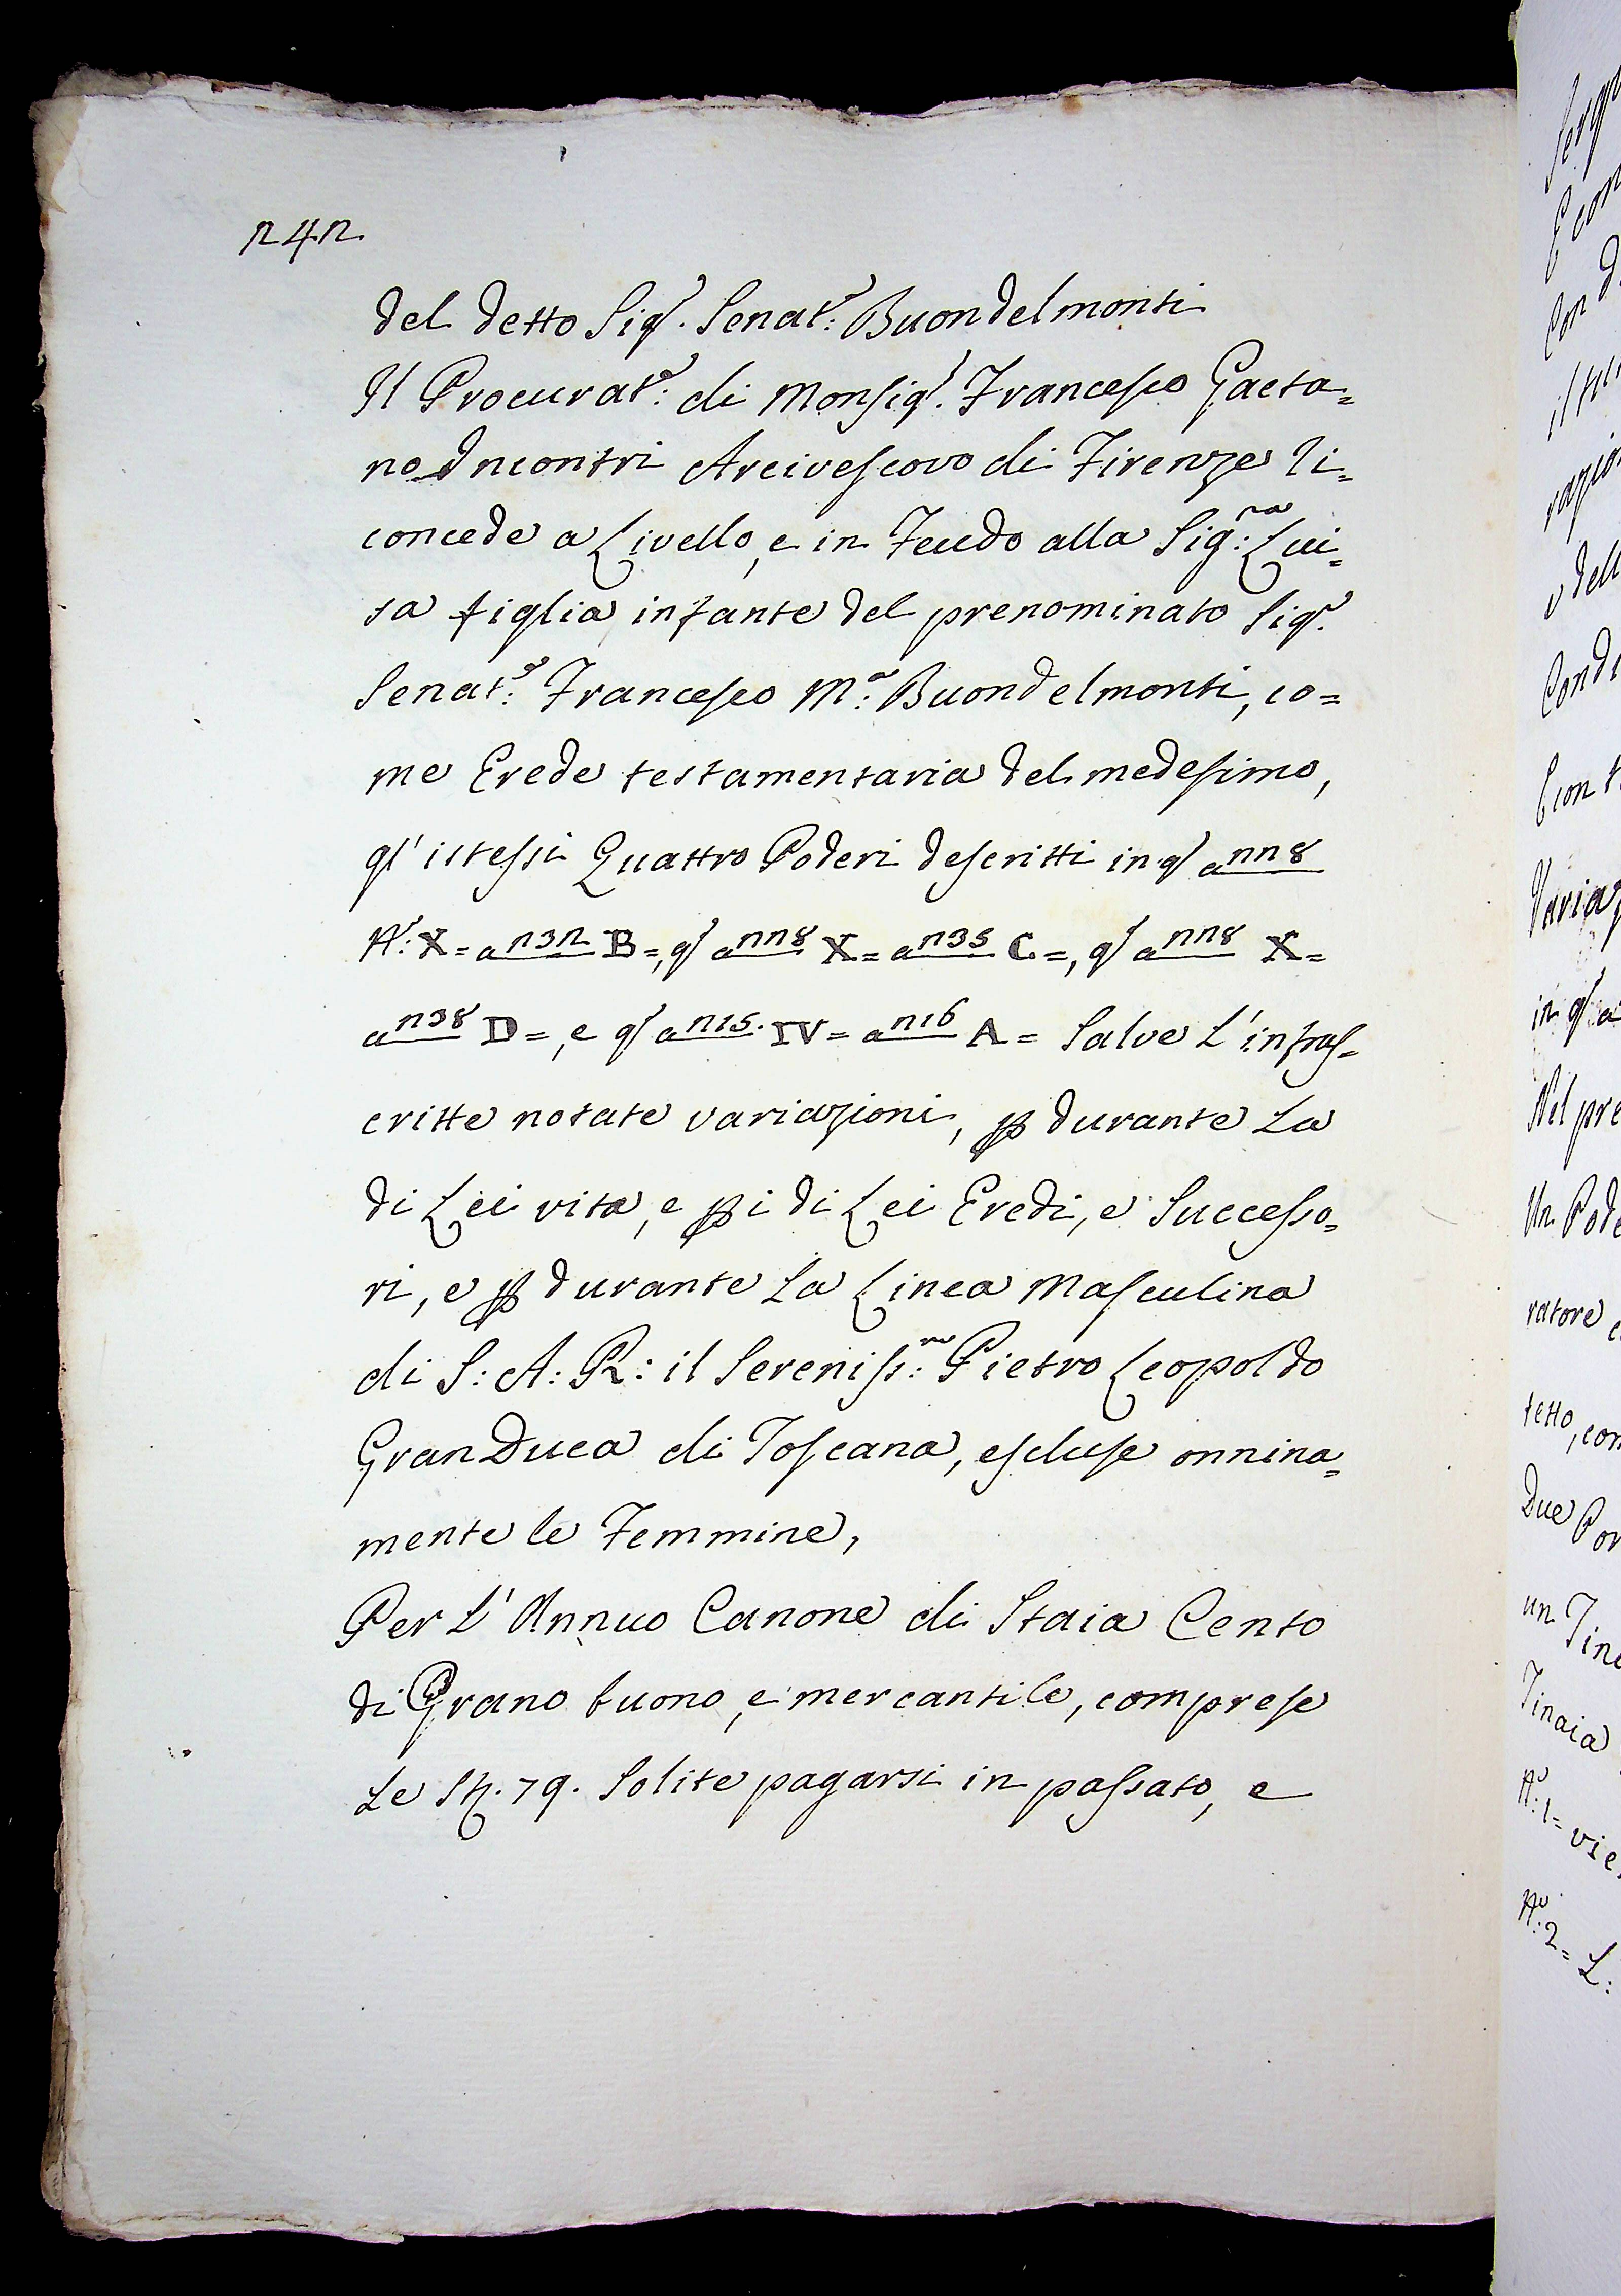 242
del detto Sig.r Senat.r: Buondelmonti
Il Procurat.e: di Monsig.r Francesco Gaeta=
no Incontri Arcivescovo di Firenze ri=
concede a Livello, e in Feudo alla Sig:ra Lui=
sa figlia infante del prenominato Sig.r
Senat.e: Francesco M.a: Buondelmonti, co=
me Erede testamentaria del medesimo,
gl'istessi Quattro Poderi descritti in q.o a 228
N.o: X = a 232 B =, q.o a 228 X = a 235 C =, q.o a 228 X =
a 238 D =, e q.o a 215. IV = a 216 A = Salve L'infras=
critte notate variazioni, p durante La
di Lei vita, e p i di Lei Eredi, e Successo=
ri, e p durante La Linea Masculina
di S: A: R: il Sereniss:mo Pietro Leopoldo
GranDuca di Toscana, escluse onnina=
mente le Femmine,
Per L'Annuo Canone di Staia Cento
di Grano buono, e mercantile, comprese
Le St. 79. Solite pagarsi in passato, e